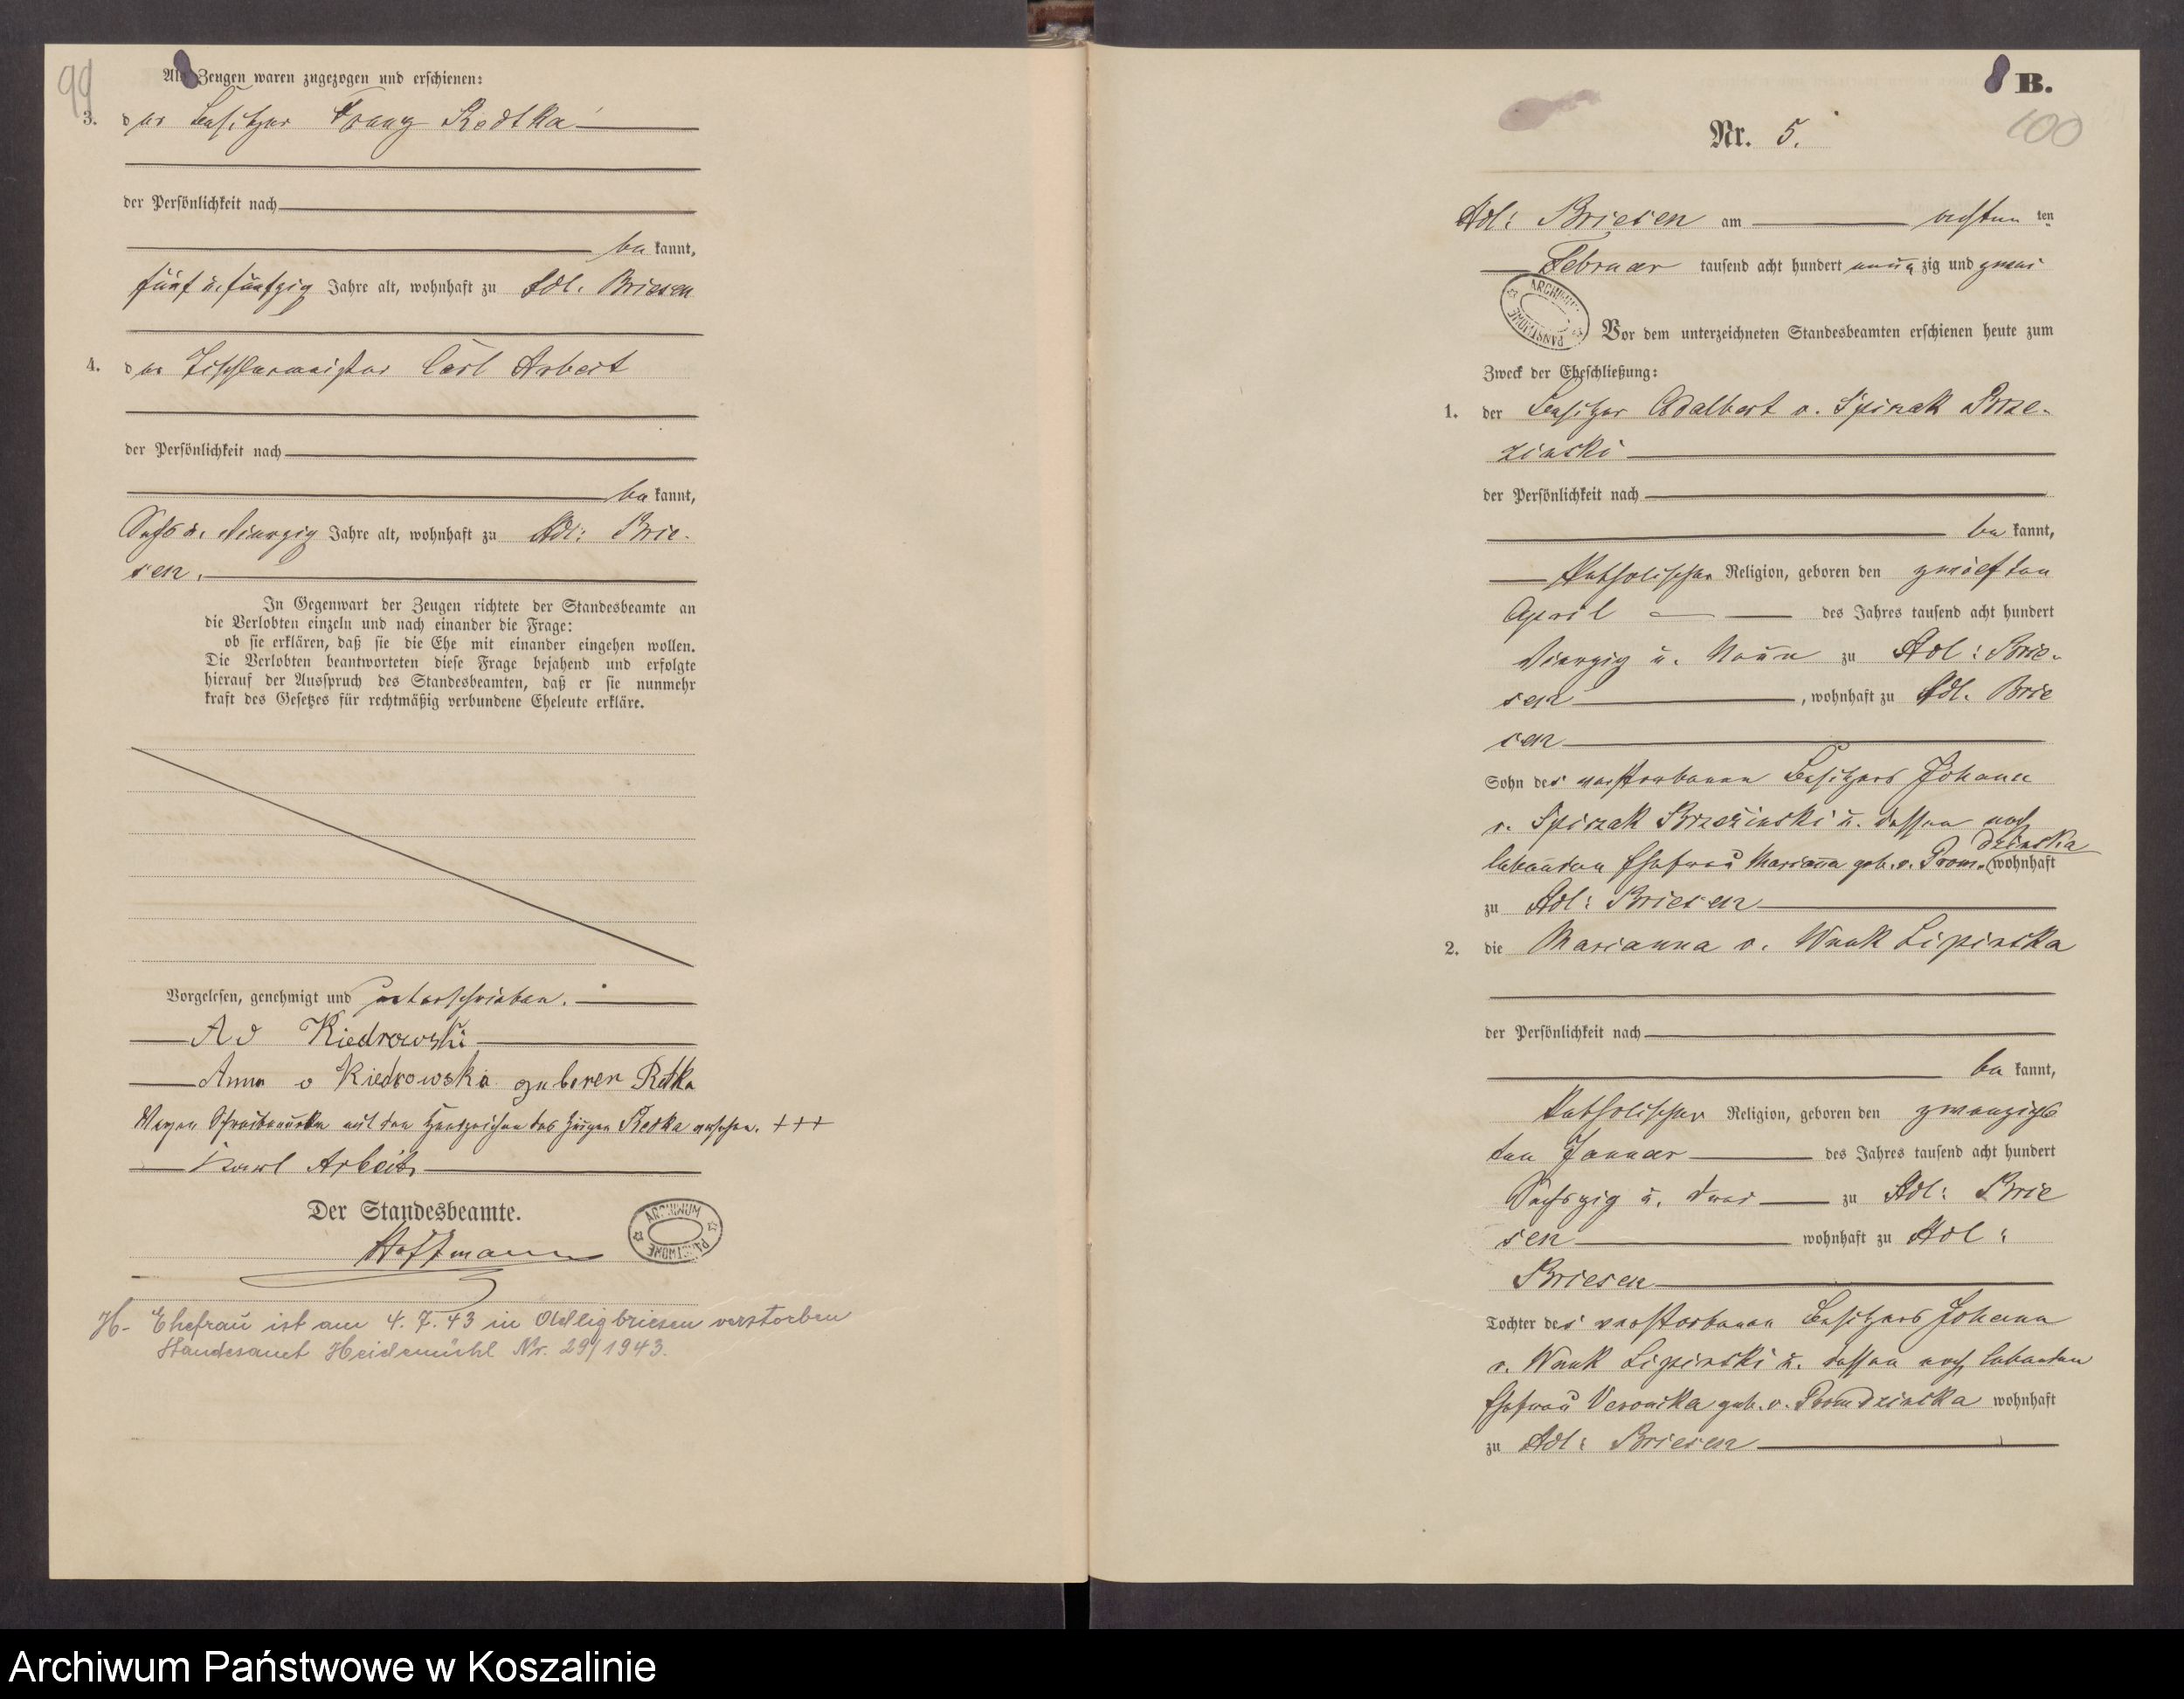 99
Als Zeugen waren zugezogen und erschienen:
3. der Besitzer Franz Redtka
der Persönlichkeit nach
be kannt,
fünf u. fünfzig Jahre alt, wohnhaft zu Adl. Briesen
4. der Tischlermeister Carl Arbeit
der Persönlichkeit nach
be kannt,
Sechs u. Vierzig Jahre alt, wohnhaft zu Adl: Brie-
sen.
In Gegenwart der Zeugen richtete der Standesbeamte an
die Verlobten einzeln und nach einander die Frage:
ob sie erklären, daß sie die Ehe mit einander eingehen wollen.
Die Verlobten beantworteten diese Frage bejahend und erfolgte
hierauf der Ausspruch des Standesbeamten, daß er sie nunmehr
kraft des Gesetzes für rechtmäßig verbundene Eheleute erkläre.
Vorgelesen, genehmigt und unterschrieben.
A v Kiedrowski
Anna v Kiedrowska geboren Retka
Wegen mit den Handzeichen des Zeugen Redka versehen. +++
Karl Arbeit
Der Standesbeamte.
Hoffmann
ARCHIWUM PAŃSTWOWE
H- Ehefrau ist am 4. 7. 43 in Adligbriesen verstorben
Standesamt Heidemühl Nr. 29/1943.
B.
100
Nr. 5.
Adl: Briesen am achten ten
Februar tausend acht hundert neun zig und zwei
ARCHIWUM PAŃSTWOWE
Vor dem unterzeichneten Standesbeamten erschienen heute zum
Zweck der Eheschließung:
1. der Besitzer Adalbert v. Spiczak Brze-
zinski
der Persönlichkeit nach
be kannt,
Katholischer Religion, geboren den zwölften
April des Jahres tausend acht hundert
Vierzig u. Neun zu Adl: Brie-
sen, wohnhaft zu Adl. Brie
sen
Sohn des verstorbenen Besitzers Johann
v. Spiczak Brzezinski u. dessen noch
lebenden Ehefrau Marianna geb. v. Prom- dzinska wohnhaft
zu Adl: Briesen
2. die Marianna v. Wnuk Lipinska
der Persönlichkeit nach
be kannt,
Katholischer Religion, geboren den zwanzigs
ten Januar des Jahres tausend acht hundert
Sechszig u. drei zu Adl: Brie
sen wohnhaft zu Adl:
Briesen
Tochter des verstorbenen Besitzers Johann
v. Wnuk Lipinski u. dessen noch lebenden
Ehefrau Veronika geb. v. Promdzinska wohnhaft
zu Adl: Briesen
Archiwum Państwowe w Koszalinie